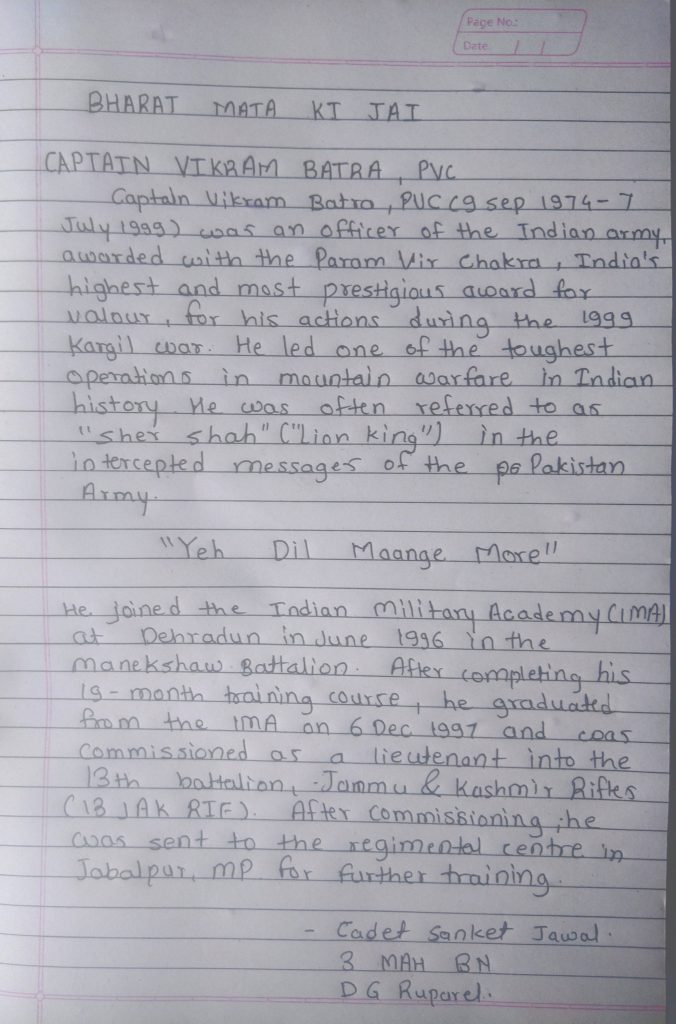 Page No.:
Date / /
BHARAT MATA KI JAI
CAPTAIN VIKRAM BATRA, PVC
Captain Vikram Batra, PVC (9 sep 1974 - 7
July 1999) was an officer of the Indian army,
awarded with the Param Vir Chakra, India's
highest and most prestigious award for
valour, for his actions during the 1999
Kargil war. He led one of the toughest
operations in mountain warfare in Indian
history. He was often referred to as
"sher shah" ("Lion king") in the
intercepted messages of the Pakistan
Army.
"Yeh Dil Maange More"
He joined the Indian Military Academy (IMA)
at Dehradun in June 1996 in the
manekshaw Battalion. After completing his
19-month training course, he graduated
from the IMA on 6 Dec 1997 and was
commissioned as a lieutenant into the
13th battalion, Jammu & Kashmir Rifles
(13 JAK RIF). After commissioning, he
was sent to the regimental centre in
Jabalpur, MP for further training.
- Cadet Sanket Jawal.
3 MAH BN
D G Ruparel.